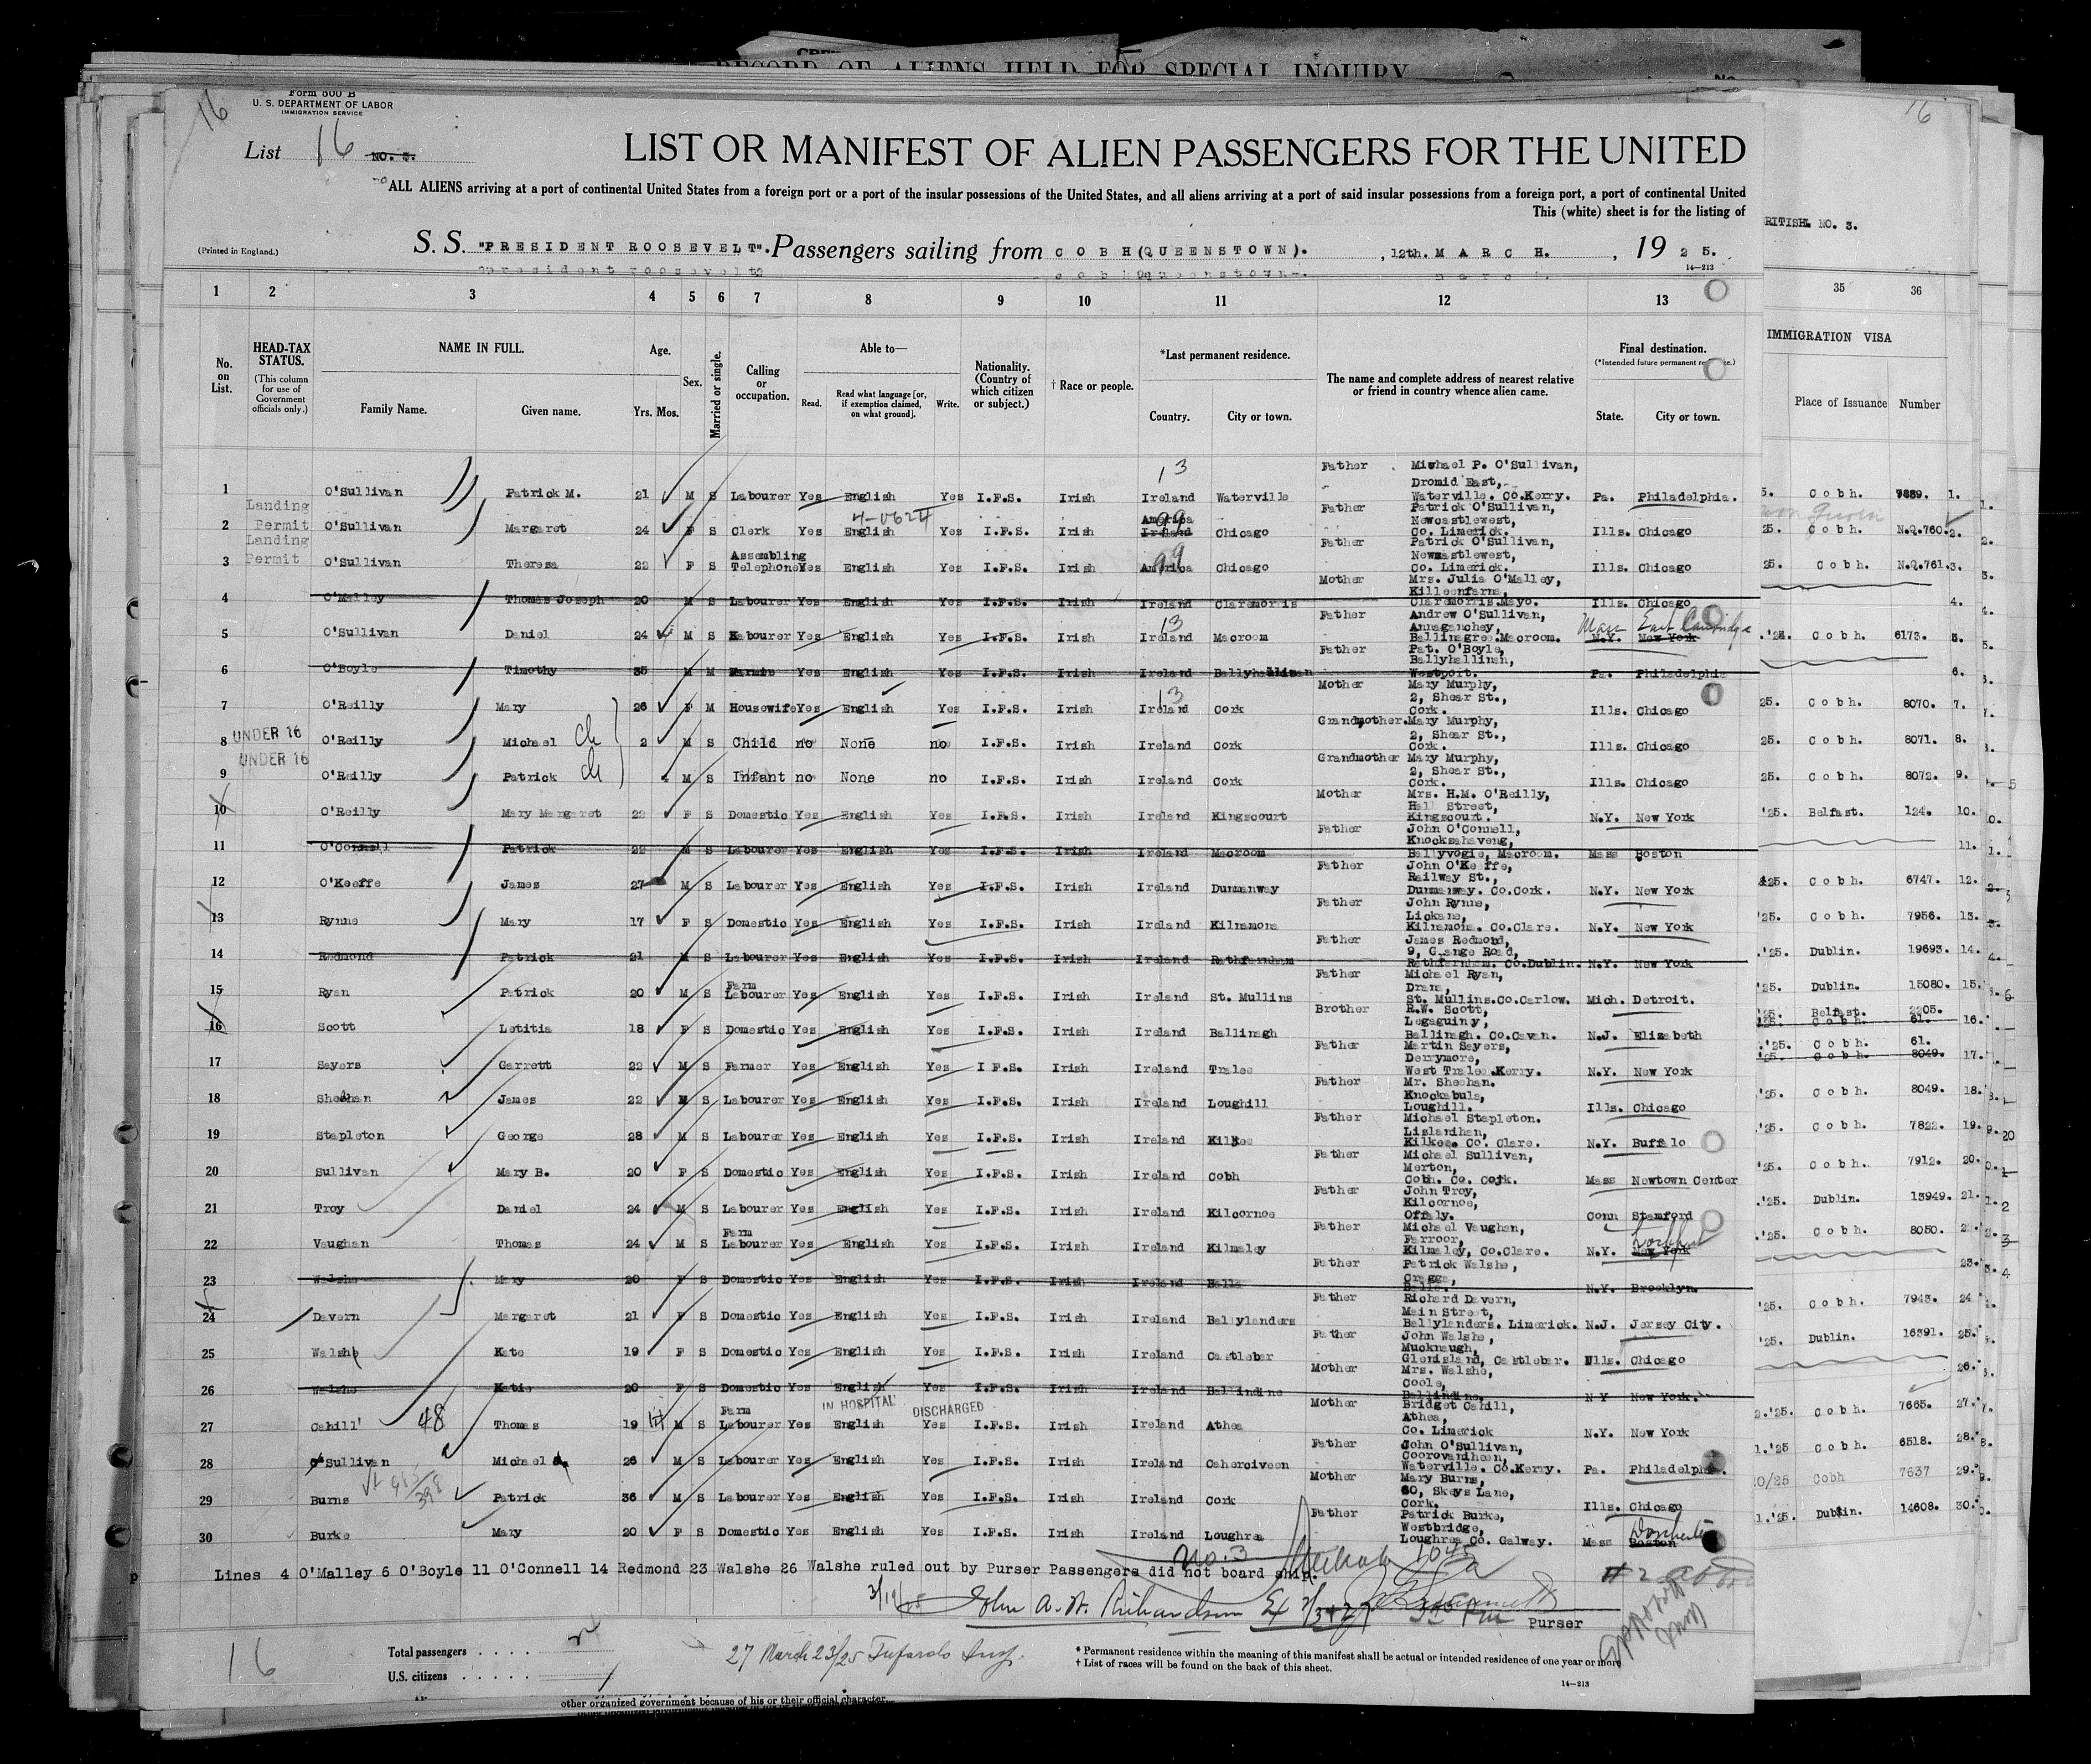 RECORD OF ALIENS HELD FOR SPECIAL INQUIRY
16
Form 500 B
U. S. DEPARTMENT OF LABOR
IMMIGRATION SERVICE
List 16 NO. 3.
LIST OR MANIFEST OF ALIEN PASSENGERS FOR THE UNITED
ALL ALIENS arriving at a port of continental United States from a foreign port or a port of the insular possessions of the United States, and all aliens arriving at a port of said insular possessions from a foreign port, a port of continental United
This (white) sheet is for the listing of
(Printed in England.)
S. S. "PRESIDENT ROOSEVELT". Passengers sailing from COBH(QUEENSTOWN). , 12th. MARCH. , 19 25.
14—213
16
RITISH. NO. 3.
1 2 3 4 5 6 7 8 9 10 11 12 13 35 36
No. on List.
HEAD-TAX STATUS.
(This column for use of Government officials only.)
NAME IN FULL.
Family Name. Given name.
Age.
Yrs. Mos.
Sex.
Married or single.
Calling or occupation.
Able to—
Read. Read what language [or, if exemption claimed, on what ground]. Write.
Nationality. (Country of which citizen or subject.)
† Race or people.
*Last permanent residence.
Country. City or town.
The name and complete address of nearest relative or friend in country whence alien came.
Final destination.
State. City or town.
IMMIGRATION VISA
Place of Issuance Number
1 O'Sullivan Patrick M. 21 M S Labourer Yes English Yes I.F.S. Irish Ireland Waterville Father Michael P. O'Sullivan, Dromid East, Waterville. Co.Kerry. Pa. Philadelphia. 5. Cobh. 7889. 1.
Landing Permit
4-0624
2 O'Sullivan Margaret 24 F S Clerk Yes English Yes I.F.S. Irish America Ireland 99 Chicago Father Patrick O'Sullivan, Newcastlewest, Co. Limerick. Ills. Chicago 25. Cobh. N.Q.760. 2.
Landing Permit
3 O'Sullivan Theresa 22 F S Assembling Telephone Yes English Yes I.F.S. Irish America 99 Chicago Father Patrick O'Sullivan, Newcastlewest, Co. Limerick. Ills. Chicago 25. Cobh. N.Q.761. 3.
4 O'Malley Thomas Joseph 20 M S Labourer Yes English Yes I.F.S. Irish Ireland Claremorris Mother Mrs. Julia O'Malley, Killeenfarna, Claremorris.Mayo. Ills. Chicago 4.
5 O'Sullivan Daniel 24 M S Labourer Yes English Yes I.F.S. Irish Ireland Macroom Father Andrew O'Sullivan, Annaganchey, Ballinagree.Macroom. N.Y. New York Mass East Cambridge .'24. Cobh. 6173. 5.
6 O'Boyle Timothy 35 M M Farmer Yes English Yes I.F.S. Irish Ireland Ballyhallinan Father Pat. O'Boyle, Ballyhallinan, Westport. Pa. Philadelphia 6.
7 O'Reilly Mary 26 F M Housewife Yes English Yes I.F.S. Irish Ireland Cork Mother Mary Murphy, 2, Shear St., Cork. Ills. Chicago 25. Cobh. 8070. 7.
UNDER 16
8 O'Reilly Michael ch 2 M S Child no None no I.F.S. Irish Ireland Cork Grandmother. Mary Murphy, 2, Shear St., Cork. Ills. Chicago 25. Cobh. 8071. 8.
UNDER 16
9 O'Reilly Patrick ch M S Infant no None no I.F.S. Irish Ireland Cork Grandmother Mary Murphy, 2, Shear St., Cork. Ills. Chicago 25. Cobh. 8072. 9.
10 O'Reilly Mary Margaret 22 F S Domestic Yes English Yes I.F.S. Irish Ireland Kingscourt Mother Mrs. H.M. O'Reilly, Hall Street, Kingscourt. N.Y. New York '25. Belfast. 124. 10.
11 O'Connell Patrick 22 M S Labourer Yes English Yes I.F.S. Irish Ireland Macroom Father John O'Connell, Knocksahaveng, Ballyvogie, Macroom. Mass Boston 11.
12 O'Keeffe James 27 M S Labourer Yes English Yes I.F.S. Irish Ireland Dunmanway Father John O'Keeffe, Railway St., Dunmanway. Co.Cork. N.Y. New York '25. Cobh. 6747. 12.
13 Rynne Mary 17 F S Domestic Yes English Yes I.F.S. Irish Ireland Kilnamona Father John Rynne, Lickane, Kilnamona. Co.Clare. N.Y. New York '25. Cobh. 7956. 13.
14 Redmond Patrick 21 M S Labourer Yes English Yes I.F.S. Irish Ireland Rathfarnham Father James Redmond, 9, Grange Road, Rathfarnham. Co.Dublin. N.Y. New York '25. Dublin. 19693. 14.
15 Ryan Patrick 20 M S Farm Labourer Yes English Yes I.F.S. Irish Ireland St. Mullins Father Michael Ryan, Drans, St. Mullins.Co.Carlow. Mich. Detroit. '25. Dublin. 15080. 15.
16 Scott Letitia 18 F S Domestic Yes English Yes I.F.S. Irish Ireland Ballinagh Brother R.W. Scott, Legaguiny, Ballinagh. Co.Cavan. N.J. Elizabeth '25. Belfast. 2205. Cobh. 61. 16.
17 Sayers Garrett 22 M S Farmer Yes English Yes I F.S. Irish Ireland Tralee Father Martin Sayers, Derrymore, West Tralee.Kerry. N.Y. New York '25. Cobh. 61. Cobh. 8049. 17.
18 Sheehan James 22 M S Labourer Yes English Yes I.F.S. Irish Ireland Loughill Father Mr. Sheehan. Knockabula, Loughill. Ills. Chicago '25. Cobh. 8049. 18.
19 Stapleton George 28 M S Labourer Yes English Yes I.F.S. Irish Ireland Kilkee Father Michael Stapleton. Lislanihan, Kilkee. Co. Clare. N.Y. Buffalo '25. Cobh. 7822. 19.
20 Sullivan Mary B. 20 F S Domestic Yes English Yes I.F.S. Irish Ireland Cobh Father Michael Sullivan, Merton, Cobh. Co. Cork. Mass Newtown Center '25. Cobh. 7912. 20.
21 Troy Daniel 24 M S Labourer Yes English Yes I.F.S. Irish Ireland Kilcornoe Father John Troy, Kilcornoe, Offaly. Conn Stamford .'25. Dublin. 13949. 21.
22 Vaughan Thomas 24 M S Farm Labourer Yes English Yes I.F.S. Irish Ireland Kilmaley Father Michael Vaughan, Farroor, Kilmaley, Co.Clare. N.Y. New York Lockport .'25. Cobh. 8050. 22.
23 Walshe Mary 20 F S Domestic Yes English Yes I.F.S. Irish Ireland Balla Father Patrick Walshe, Cragga, Balla. N.Y. Brooklyn. 23.
24 Davern Margaret 21 F S Domestic Yes English Yes I.F.S. Irish Ireland Ballylanders Father Richard Davern, Main Street, Ballylanders. Limerick. N.J. Jersey City. '25. Cobh. 7943. 24
25 Walshe Kate 19 F S Domestic Yes English Yes I.F.S. Irish Ireland Castlebar Father John Walshe, Mucknaugh, Glenisland, Castlebar. Ills. Chicago '25. Dublin. 16391. 25.
26 Walshe Katie 20 F S Domestic Yes English Yes I.F.S. Irish Ireland Ballindine Mother Mrs. Walshe, Coole, Ballindine. NY New York. 26.
IN HOSPITAL DISCHARGED
27 Cahill 48 Thomas 19 M S Farm Labourer Yes English Yes I.F.S. Irish Ireland Athea Mother Bridget Cahill, Athea, Co. Limerick N.Y. New York 2.'25. Cobh. 7665. 27.
28 O'Sullivan Michael 26 M S Labourer Yes English Yes I.F.S. Irish Ireland Caherciveen Father John O'Sullivan, Coorovanheen, Waterville. Co.Kerry. Pa. Philadelphia. 1.'25 Cobh. 6518. 28.
29 Burns Patrick 36 M S Labourer Yes English Yes I.F.S. Irish Ireland Cork Mother Mary Burns, 60, Skeys Lane, Cork. Ills. Chicago 10/25 Cobh 7637 29.
30 Burke Mary 20 F S Domestic Yes English Yes I.F.S. Irish Ireland Loughrea Father Patrick Burke, Westbridge, Loughrea Co. Galway. Mass Boston Dorchester 1.'25. Dublin. 14608. 30.
No. 3
Lines 4 O'Malley 6 O'Boyle 11 O'Connell 14 Redmond 23 Walshe 26 Walshe ruled out by Purser Passengers did not board ship.
John A. W. Richardson
Purser
16
Total passengers
U.S. citizens
27 March 23/25
* Permanent residence within the meaning of this manifest shall be actual or intended residence of one year or more
† List of races will be found on the back of this sheet.
14—213
other organized government because of his or their official character.